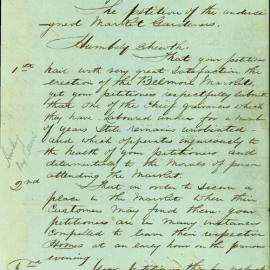 The Petition of the undersi-
gned Market Gardeners.
Humbly Sheweth
That your petitioners
1st hail with very great satisfaction the
erection of the Belmore Market,
yet your petitioners respectfully submit
that one of the Chief grievances which
they have laboured under for a number
of years Still remains unabated
and which operates injuriously to
the health of your petitioners and
determination to the Morals of persons
attending the Market.
2nd That in order to Secure a
place in the Market where their
Customers may find them your
petitioners are in many instances
Compelled to leave their respective
Homes at an early hour on the previous
evening